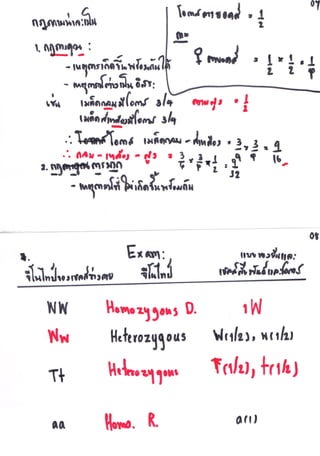 07
กฎความน่าจะเป็น
โอกาส = 1/2
♀ = 1/2 × 1/2 = 1/4
1. กฎการคูณ :
- เหตุการเกิดขึ้นพร้อมกันได้
- เหตุการณ์ต่างเป็นอิสระ
เช่น เมล็ดกลมมีโอกาส 3/4
= 1/2
เมล็ดสีเหลืองมีโอกาส 3/4
∴ โอกาส เมล็ดกลม - สีเหลือง = 3/4 × 3/4 = 9/16
∴ กลม - เหลือง - สูง = 3/4 × 3/4 × 1/2 = 9/32
2. กฎการบวก
- เหตุการณ์ที่ไม่เกิดขึ้นพร้อมกัน
08
Exam:
จีโนไทป์ของเซลล์ร่างกาย จีโนไทป์
เซลล์สืบพันธุ์และโอกาส
WW Homozygous D. 1W
Ww Heterozygous W(1/2), w(1/2)
Tt Heterozygous T(1/2), t(1/2)
aa Homo. R. a(1)